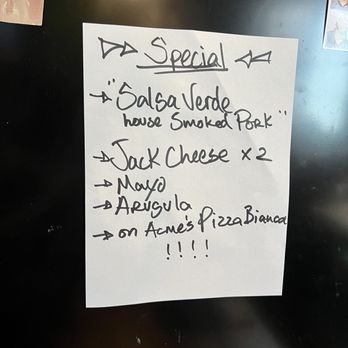 Special
"Salsa Verde
house Smoked Pork"
Jack Cheese x2
Mayo
Arugula
on Acme's Pizza Bianca
!!!!